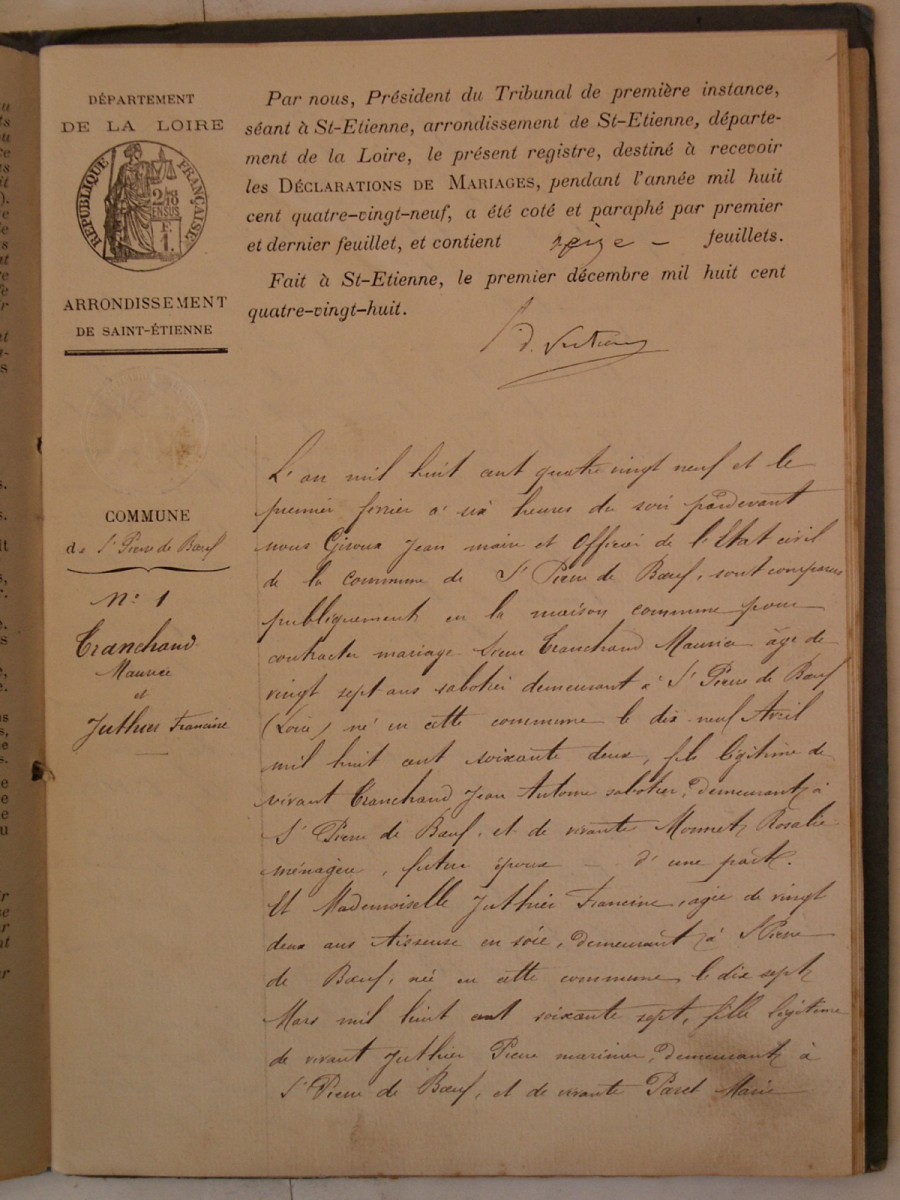 DÉPARTEMENT
DE LA LOIRE
RÉPUBLIQUE FRANÇAISE
2/10
EN SUS
F.
1.
ARRONDISSEMENT
DE SAINT-ÉTIENNE
Par nous, Président du Tribunal de première instance,
séant à St-Etienne, arrondissement de St-Etienne, départe-
ment de la Loire, le présent registre, destiné à recevoir
les DÉCLARATIONS DE MARIAGES, pendant l'année mil huit
cent quatre-vingt-neuf, a été coté et paraphé par premier
et dernier feuillet, et contient seize feuillets.
Fait à St-Etienne, le premier décembre mil huit cent
quatre-vingt-huit.
COMMUNE
de St Pierre de Bœuf
No 1
Tranchand
Maurice
et
Juthier Francine
L'an mil huit cent quatre vingt neuf et le
premier février à six heures du soir pardevant
nous Giroux Jean maire et Officier de l'Etat civil
de la commune de St Pierre de Bœuf, sont comparus
publiquement en la maison commune pour
contracter mariage Sieur Tranchand Maurice âgé de
vingt sept ans sabotier demeurant à St Pierre de Bœuf
(Loire) né en cette commune le dix neuf Avril
mil huit cent soixante deux, fils légitime de
vivant Tranchand Jean Antoine sabotier, demeurant à
St Pierre de Bœuf, et de vivante Monnet Rosalie
ménagère, futur époux — d'une part.
Et Mademoiselle Juthier Francine, agée de vingt
deux ans tisseuse en soie, demeurant à St Pierre
de Bœuf, née en cette commune le dix sept
Mars mil huit cent soixante sept, fille légitime
de vivant Juthier Pierre marinier, demeurant à
St Pierre de Bœuf, et de vivante Paret Marie